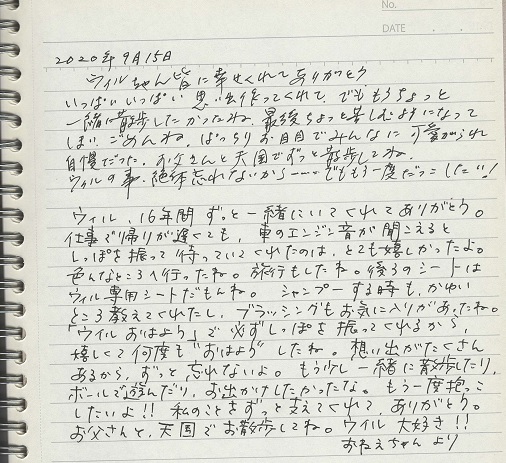 No.
DATE
2020年9月15日
ウィルちゃん皆に幸せくれてありがとう
いっぱいいっぱい思い出作ってくれて、でももうちょっと
一緒に散歩したかったね。最後ちょっと苦しむようになって
しまいごめんね。ぱっちりお目目でみんなに可愛がられ
自慢だった。お父さんと天国でずっと散歩してね。
ウィルの事絶体忘れないから……でももう一度だっこしたい!
ウィル、16年間ずっと一緒にいてくれてありがとう。
仕事で帰りが遅くても、車のエンジン音が聞こえると
しっぽを振って待っていてくれたのは、とても嬉しかったよ。
色んなところへ行ったね。旅行もしたね。後ろのシートは
ウィル専用シートだもんね。シャンプーする時も、かゆい
ところ教えてくれたし、ブラッシングもお気に入りがあったね。
「ウィルおはよう」で必ずしっぽを振ってくれるから、
嬉しくて何度も"おはよう"したね。想い出がたくさん
あるから、ずっと忘れないよ。もう少し一緒に散歩したり、
ボールで遊んだり、お出かけしたかったな。もう一度抱っこ
したいよ!!私のことをずっと支えてくれて、ありがとう。
お父さんと、天国でお散歩してね。ウィル大好き!!
おねえちゃんより